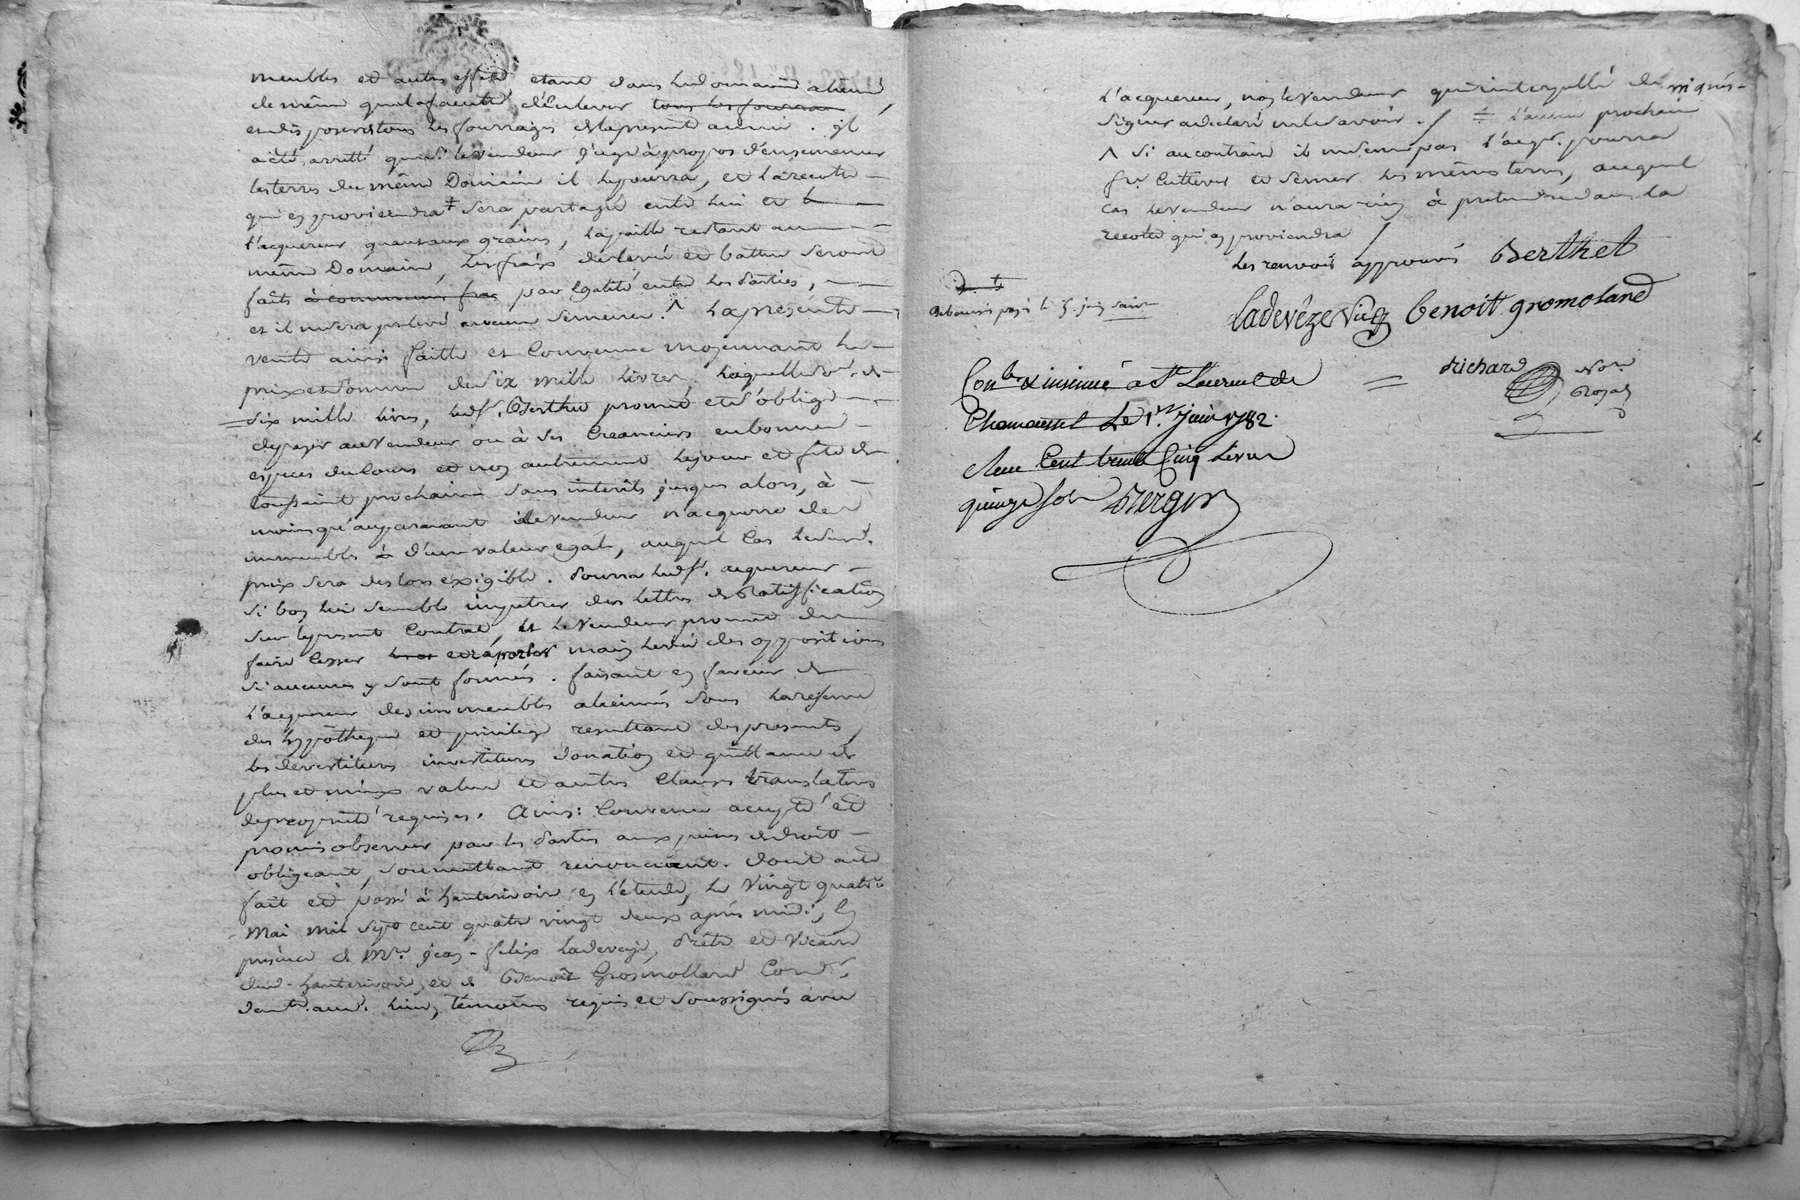 meubles et autres effets etant dans led. domaine aliené
de même qu'il a faculté d'Enlever tous les fourrages
et disposer de tous les fourrages de la presente année. il
a été arrêté que si le vendeur juge à propos d'ensemencer
les terres du même Domaine il le pourra, et la recolte
qui en proviendra ‡ sera partagée entre lui et
l'acquereur quant aux grains, la paille restant au
même Domaine, les fraix de levée et battue seront
faits à communs frai par Egalité entre les Parties,
et il ne sera prelevé aucune semence. ^ La presente
vente ainsi faitte et Convenue moyennant le
prix et somme de six mille livres, laquelle so.e de
= six mille livres, led. S.r Berthet promet et s'oblige
de payer au vendeur ou à ses Creanciers en bonnes
especes du Cours et non autrement le jour et fête de
Toussaint prochaine sans interêts jusques alors, à
moins qu'auparavant le vendeur n'acquerre des
immeubles à d'une valeur egale, auquel Cas led.
prix sera des lors exigible. Pourra led. S.r acquereur
si bon lui semble impetrer des lettres de Ratiffication
sur le present Contrat, et le Vendeur promet de
faire Cesser et raporter main levée des oppositions
si aucunes y sont formées. faisant en faveur de
l'acquereur des immeubles alienés sous la reserve
des hypotheque et privilege resultant des presentes,
les devestitures investitures donation et quittance de
plus et mieux value et autres Clauses translatives
de propriété requises. Ainsi Convenu accepté et
promis observer par les Parties aux peines de droit
obligeant, soumettant renonciant. dont acte
fait et passé à hauterivoire en l'etude, le vingt quatre
mai mil sept cent quatre vingt deux après midi, En
presence de M.re jean-felix Ladeveze, Prêtre et Vicaire
dud. hauterivoire, et de Benoit Grosmolland Cord.r
demt. aud. lieu, témoins requis et soussignés avec
l'acquereur, non le Vendeur qui interpellé de
signer a declaré ne le savoir. / ‡ l'année prochaine
^ si au contraire il n'ensemence pas l'acqr. pourra
fre. Cultiver et semer les mêmes terres, auquel
Cas le vendeur n'aura rien à pretendre dans la
recolte qui en proviendra /
les renvois approuvés Berthet
Ladevéze Vic. benoit gromoland
Richard No.re
Royal
Con.lé & insinué a St Laurent de
Chamousset Le 1.er Juin 1782.
Reçu Cent trente Cinq Livres
quinze sols Bergir